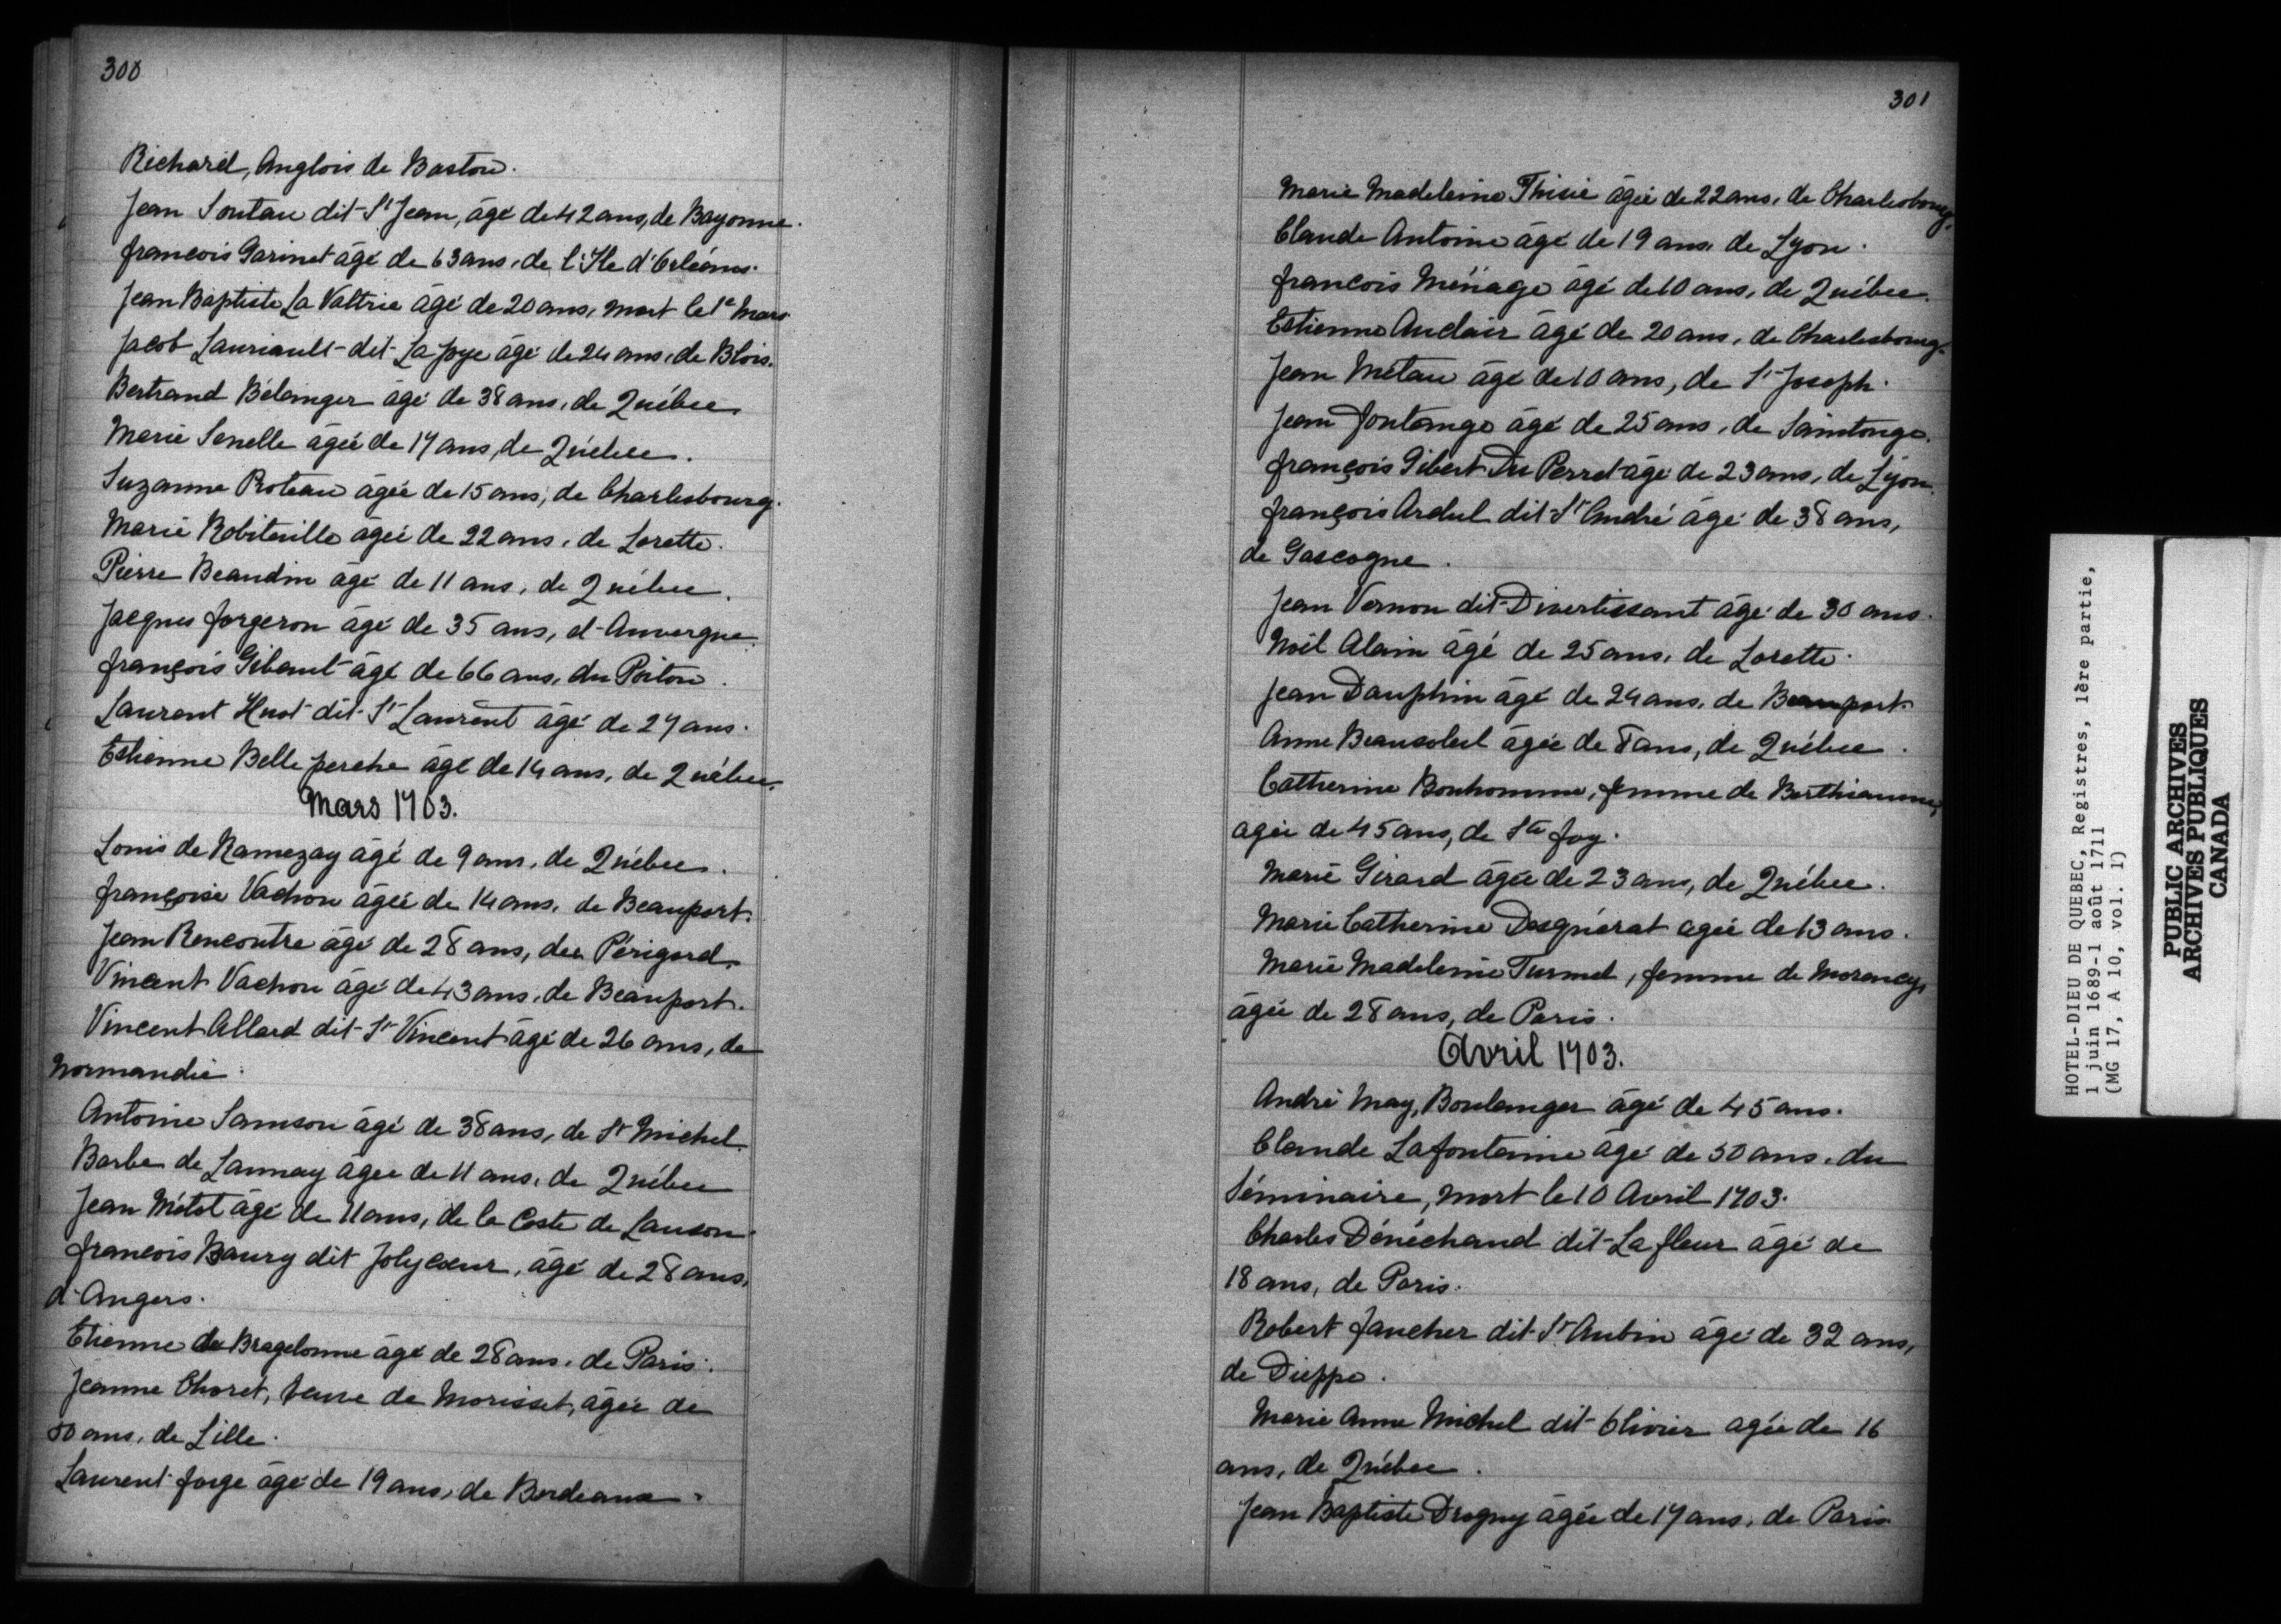 300
Richard, Anglois de Baston.
Jean Soutau dit St Jean, âgé de 42 ans, de Bayonne.
francois Garinet âgé de 63 ans, de l'Ile d'Orléans.
Jean Baptiste La Valtrie âgé de 20 ans, mort le 1e Mars
Jacob Lauriault dit La Joye âgé de 24 ans, de Blois.
Bertrand Bélanger âgé de 38 ans, de Québec.
Marie Senelle âgée de 17 ans, de Québec.
Suzanne Proteau âgée de 15 ans, de Charlesbourg.
Marie Robitaille âgée de 22 ans, de Lorette.
Pierre Beaudin âgé de 11 ans, de Québec.
Jacques forgeron âgé de 35 ans, d'Auvergne.
françois Gibaut âgé de 66 ans, du Poitou.
Laurent Huot dit St Laurent âgé de 27 ans.
Estienne Belle perche âgé de 14 ans, de Québec.
Mars 1703.
Louis de Ramezay âgé de 9 ans, de Québec.
françoise Vachon âgée de 14 ans, de Beauport.
Jean Rencontre âgé de 28 ans, du Périgord.
Vincent Vachon âgé de 43 ans, de Beauport.
Vincent Allard dit St Vincent âgé de 26 ans, de
Normandie.
Antoine Samson âgé de 38 ans, de St Michel.
Barbe de Launay âgée de 11 ans, de Québec
Jean Métot âgé de 11 ans, de la Coste de Lauson.
francois Baury dit Jolycoeur, âgé de 28 ans,
d'Angers.
Etienne de Bragelonne âgé de 28 ans, de Paris.
Jeanne Choret, veuve de Morisset, âgée de
50 ans, de Lille.
Laurent forge âgé de 19 ans, de Bordeaux.
301
Marie Madeleine Thisié âgée de 22 ans, de Charlesbourg.
Claude Antoine âgé de 19 ans, de Lyon.
francois Ménage âgé de 10 ans, de Québec.
Estienne Auclair âgé de 20 ans, de Charlesbourg.
Jean Métau âgé de 10 ans, de St Joseph.
Jean fontange âgé de 25 ans, de Saintonge.
françois Gibert Du Perret âgé de 23 ans, de Lyon.
françois Ardul dit St André âgé de 38 ans,
de Gascogne.
Jean Vernon dit Divertissant âgé de 30 ans.
Noël Alain âgé de 25 ans, de Lorette.
Jean Dauphin âgé de 24 ans, de Beauport.
Anne Beausoleil âgée de 8 ans, de Québec.
Catherine Bonhomme, femme de Berthiaume,
agée de 45 ans, de Ste foy.
Marie Girard âgée de 23 ans, de Québec.
Marie Catherine Desguérat agée de 13 ans.
Marie Madeleine Turmel, femme de Morancy,
âgée de 28 ans, de Paris.
Avril 1703.
André May, Boulanger âgé de 45 ans.
Claude Lafontaine âgé de 50 ans, du
Séminaire, mort le 10 Avril 1703.
Charles Dénéchaud dit La fleur âgé de
18 ans, de Paris.
Robert faucher dit St Aubin âgé de 32 ans,
de Dieppe.
Marie Anne Michel dit Olivier agée de 16
ans, de Québec.
Jean Baptiste Drogny âgée de 17 ans, de Paris.
HOTEL-DIEU DE QUEBEC, Registres, 1ère partie,
1 juin 1689-1 août 1711
(MG 17, A 10, vol. 1)
PUBLIC ARCHIVES
ARCHIVES PUBLIQUES
CANADA